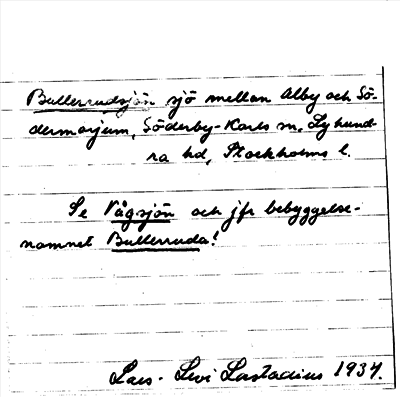 Bullerudsjön sjö mellan Alby och Sö-
dermarjum, Söderby-Karls sn, Lyhund-
ra hd, Stockholms l.
Se Vågsjön och jfr bebyggelse-
namnet Bullerruda!
Lars-Levi Læstadius 1937.